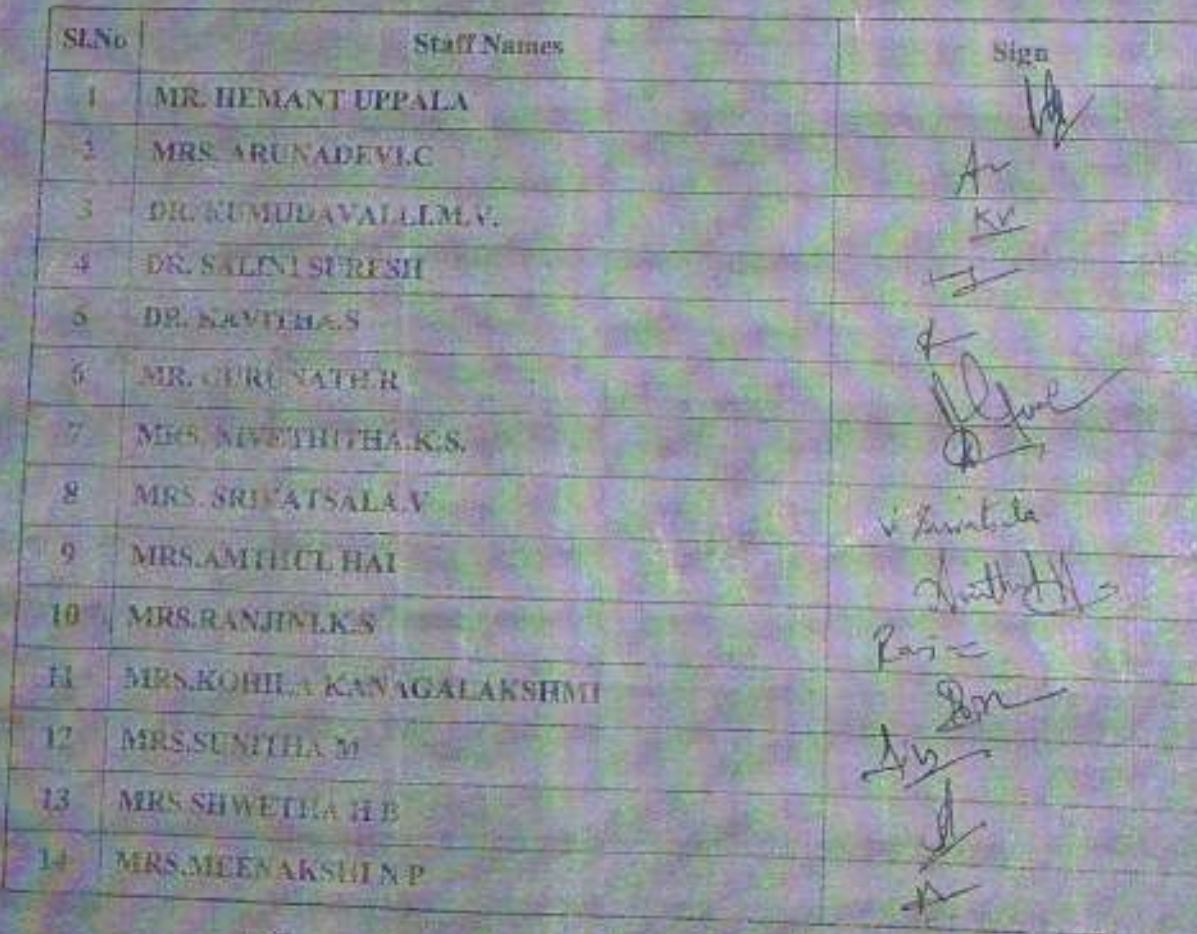 Sl.No Staff Names Sign
1 MR. HEMANT UPPALA
2 MRS. ARUNADEVI.C Ar
3 DR. KUMUDAVALLI.M.V. KV
4 DR. SALINI SURESH
5 DR. KAVITHA.S
6 MR. GURUNATH.R
7 MRS. K.S.
8 MRS. SRIVATSALA.V
9 MRS.AMTHUL HAI
10 MRS.RANJINI.K.S
11 MRS.KOHILA KANAGALAKSHMI
12 MRS.SUNITHA M
13 MRS SHWETHA H B
14 MRS.MEENAKSHI N P